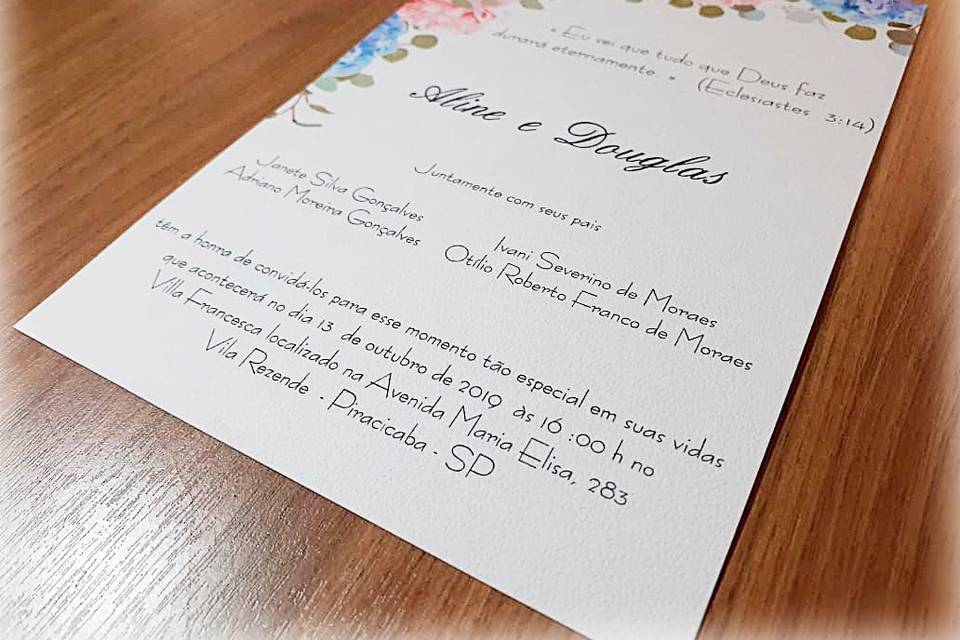 " Eu sei que tudo que Deus faz
durará eternamente. " (Eclesiastes 3:14)
Aline e Douglas
Juntamente com seus pais
Janete Silva Gonçalves
Adriano Moreira Gonçalves
Ivani Severino de Moraes
Otílio Roberto Franco de Moraes
têm a honra de convidá-los para esse momento tão especial em suas vidas
que acontecerá no dia 13 de outubro de 2019 às 16:00 h no
Villa Francesca localizado na Avenida Maria Elisa, 283
Vila Rezende - Piracicaba - SP